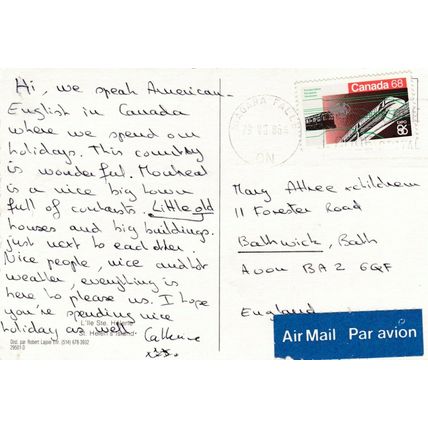 Hi, we speak American-
English in Canada
where we spend our
holidays. This country
is wonderful. Montreal
is a nice big town
full of contrasts. Little old
houses and big buildings
just next to each other.
Nice people, nice and hot
weather, everything is
here to please us. I hope
you're spending nice
holiday as well
Catherine
xxx.
L'Île Ste. Hélène
St. Helen's Island
Dist. par Robert Lajoie Enr. (514) 678-3932
29501 D
Canada 68
EXPO
86
NIAGARA FALLS
ON
Mary Attree + children
11 Forester Road
Bathwick, Bath
Avon BA2 6QF
England
Air Mail Par avion